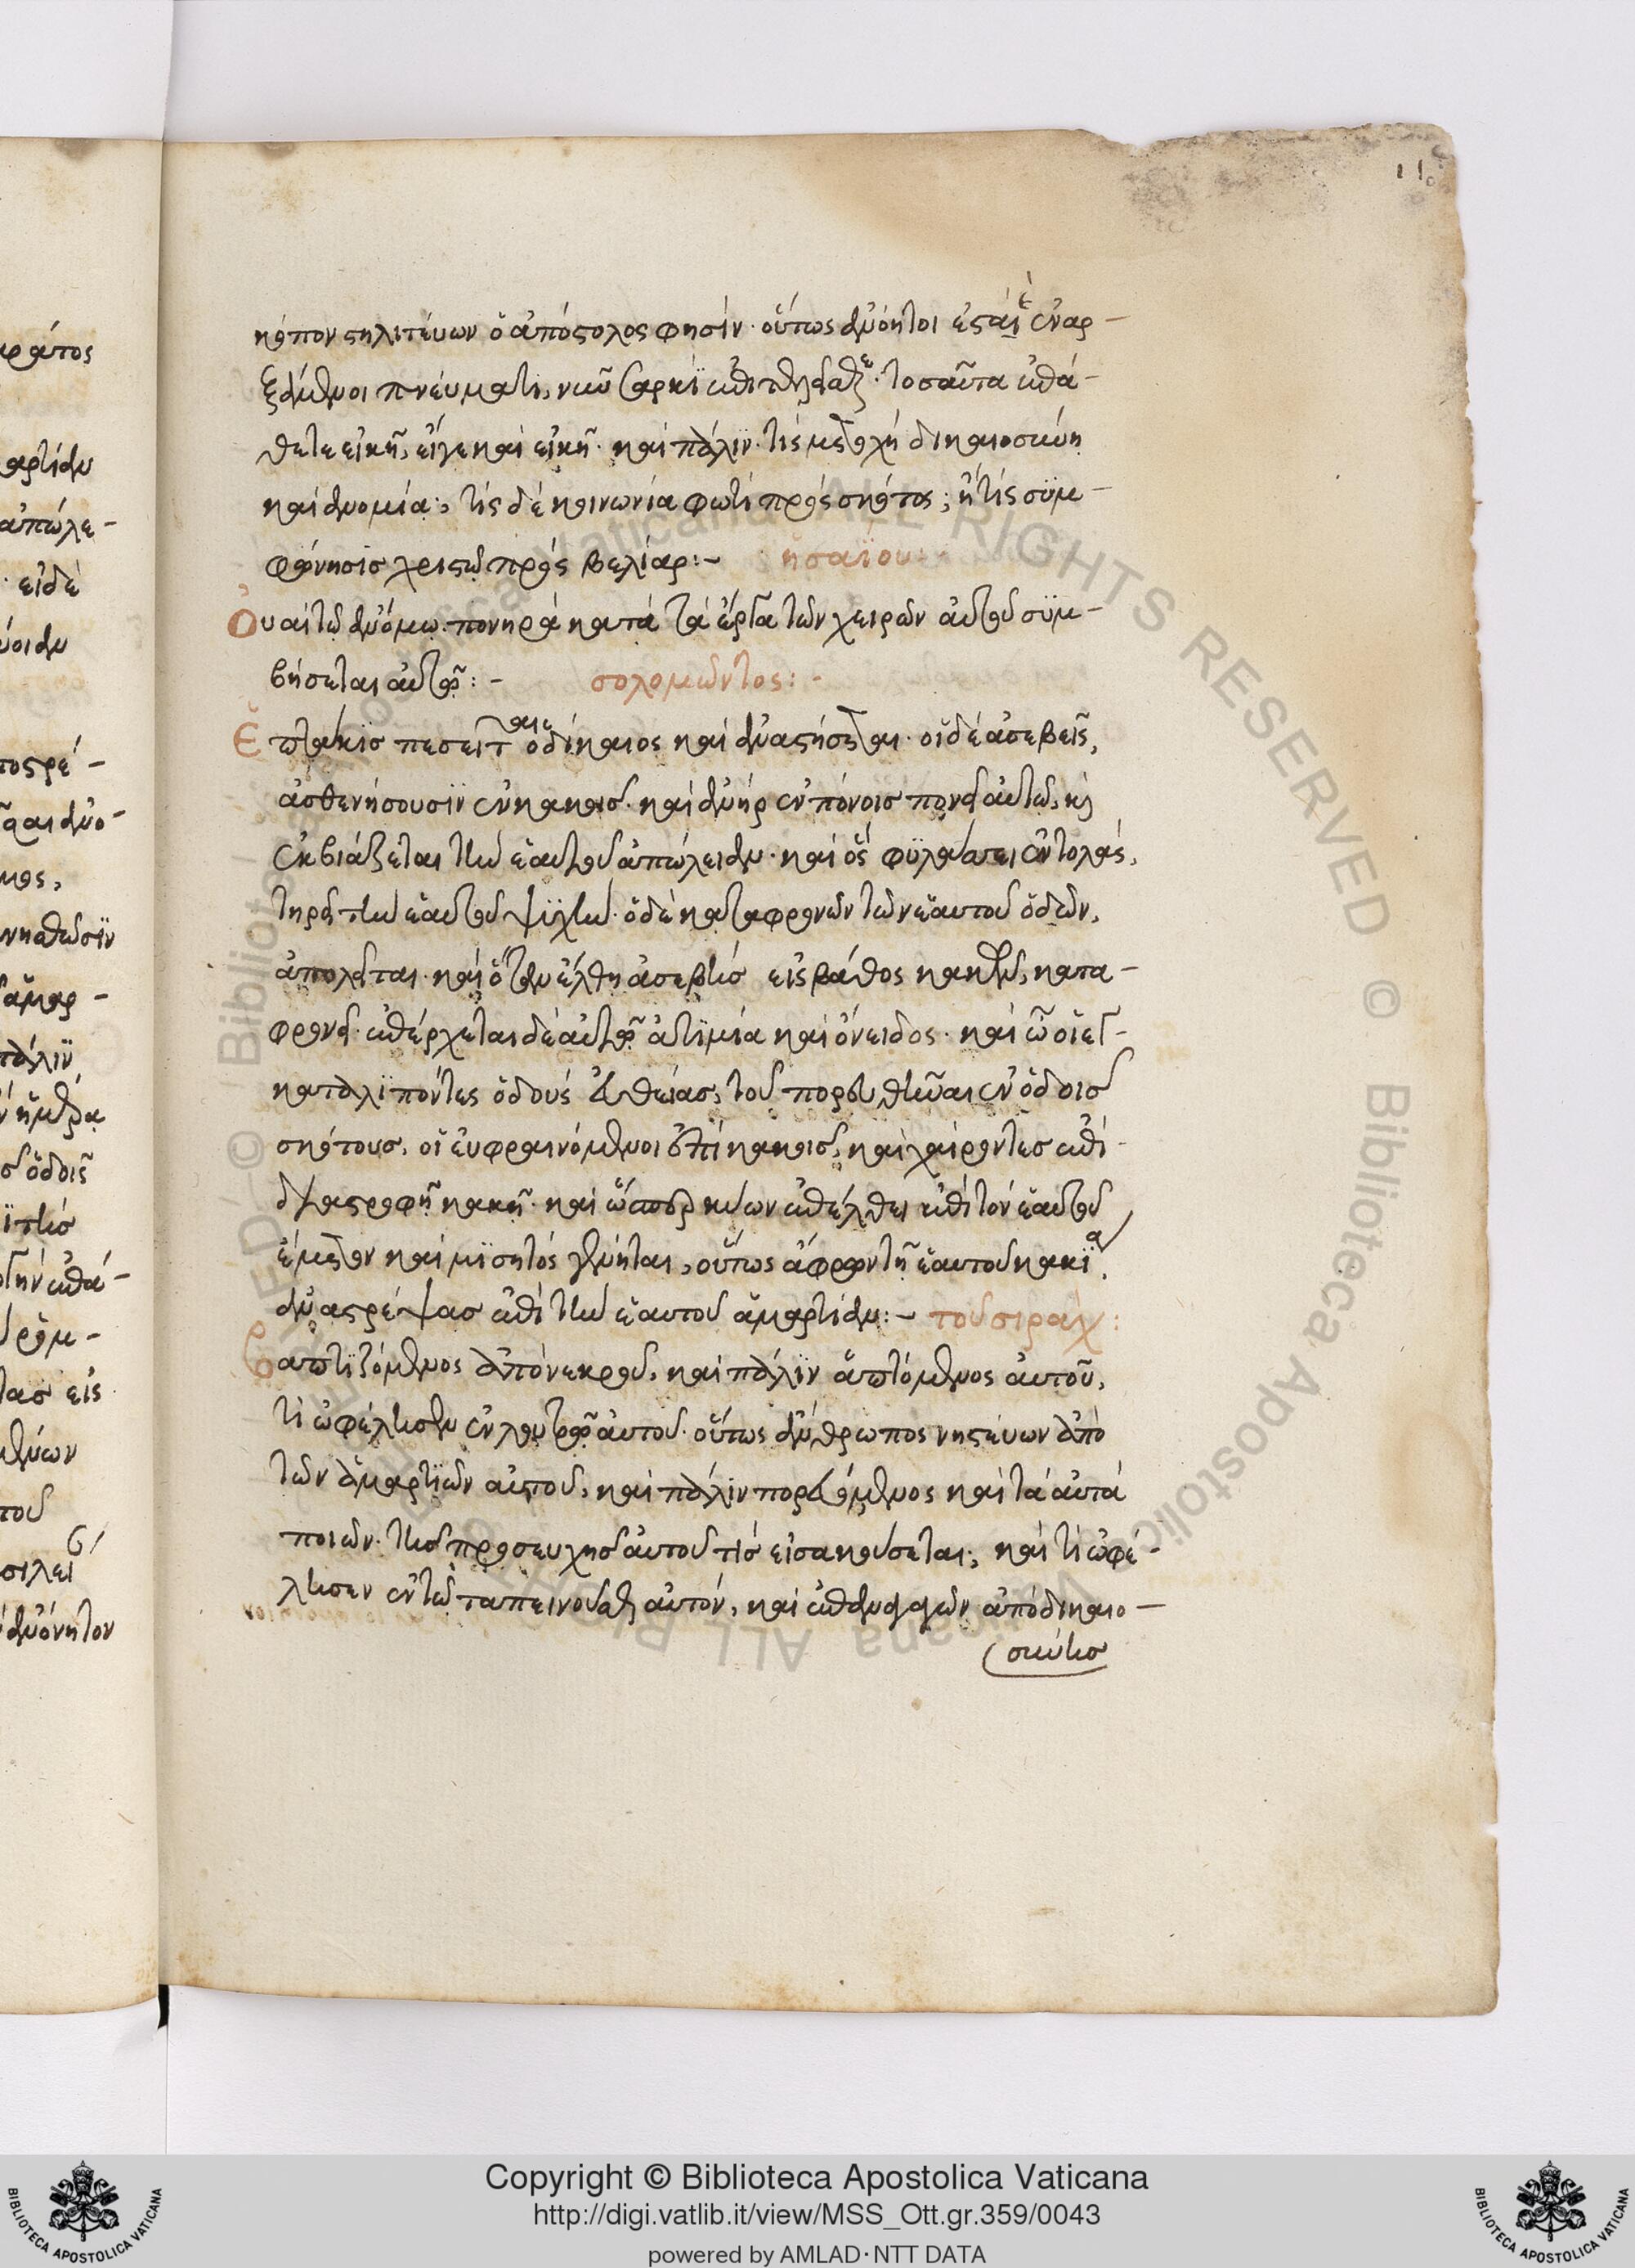 κόπον στηλιτεύων ὁ ἀπόστολος φησίν· οὕτως ἀνόητοί ἐσται ἐναρ-
ξάμενοι πνεύματι, νῦν σαρκὶ ἐπιτελεῖσθε· τοσαῦτα ἐπά-
θετε εἰκῆ, εἴγε καὶ εἰκῆ· καὶ πάλιν· τίς μετοχὴ δικαιοσύνη
καὶ ἀνομία; τίς δὲ κοινωνία φωτὶ πρὸς σκότος; ἢ τίς συμ-
φώνησις χριστῷ πρὸς βελίαρ:- ἡσαΐου:
Οὐαὶ τῷ ἀνόμῳ· πονηρὰ κατὰ τὰ ἔργα τῶν χειρῶν αὐτοῦ συμ-
βήσεται αὐτῷ:- σολομῶντος:-
Ἑπτάκις πεσεῖται ὁ δίκαιος καὶ ἀναστήσεται· οἱ δὲ ἀσεβεῖς,
ἀσθενήσουσιν ἐν κακοῖς· καὶ ἀνὴρ ἐν πόνοις πονεῖ αὐτῷ, καὶ
ἐκβιάζεται τὴν ἑαυτοῦ ἀπώλειαν· καὶ ὃς φυλάσσει ἐντολάς,
τηρεῖ τὴν ἑαυτοῦ ψυχήν· ὁ δὲ καταφρονῶν τῶν ἑαυτοῦ ὁδῶν,
ἀπολεῖται· καὶ ὅταν ἔλθῃ ἀσεβὴς εἰς βάθος κακῶν, κατα-
φρονεῖ· ἐπέρχεται δὲ αὐτῷ ἀτιμία καὶ ὄνειδος· καὶ ὦ οἱ ἐγ-
καταλιπόντες ὁδοὺς εὐθείας, τοῦ πορευθῆναι ἐν ὁδοῖς
σκότους, οἱ εὐφραινόμενοι ἐπὶ κακοῖς, καὶ χαίροντες ἐπὶ
διαστροφῇ κακῇ· καὶ ὥσπερ κύων ἐπέλθει ἐπὶ τὸν ἑαυτοῦ
ἔμετον καὶ μισητὸς γένηται, οὕτως ἄφρων τῇ ἑαυτοῦ κακίᾳ,
ἀναστρέψας ἐπὶ τὴν ἑαυτοῦ ἁμαρτίαν:- τοῦ σιράχ:
Βαπτιζόμενος ἀπὸ νεκροῦ, καὶ πάλιν ἁπτόμενος αὐτοῦ,
τί ὠφέλησεν ἐν λουτρῷ αὐτοῦ· οὕτως ἄνθρωπος νηστεύων ἀπὸ
τῶν ἁμαρτιῶν αὐτοῦ, καὶ πάλιν πορευόμενος καὶ τὰ αὐτὰ
ποιῶν· τῆς προσευχῆς αὐτοῦ τίς εἰσακούσεται; καὶ τί ὠφέ-
λησεν ἐν τῷ ταπεινοῦσθαι αὐτόν, καὶ ἐπανάγων ἀπὸ δικαιο-
σύνης
Copyright © Biblioteca Apostolica Vaticana
http://digi.vatlib.it/view/MSS_Ott.gr.359/0043
powered by AMLAD·NTT DATA